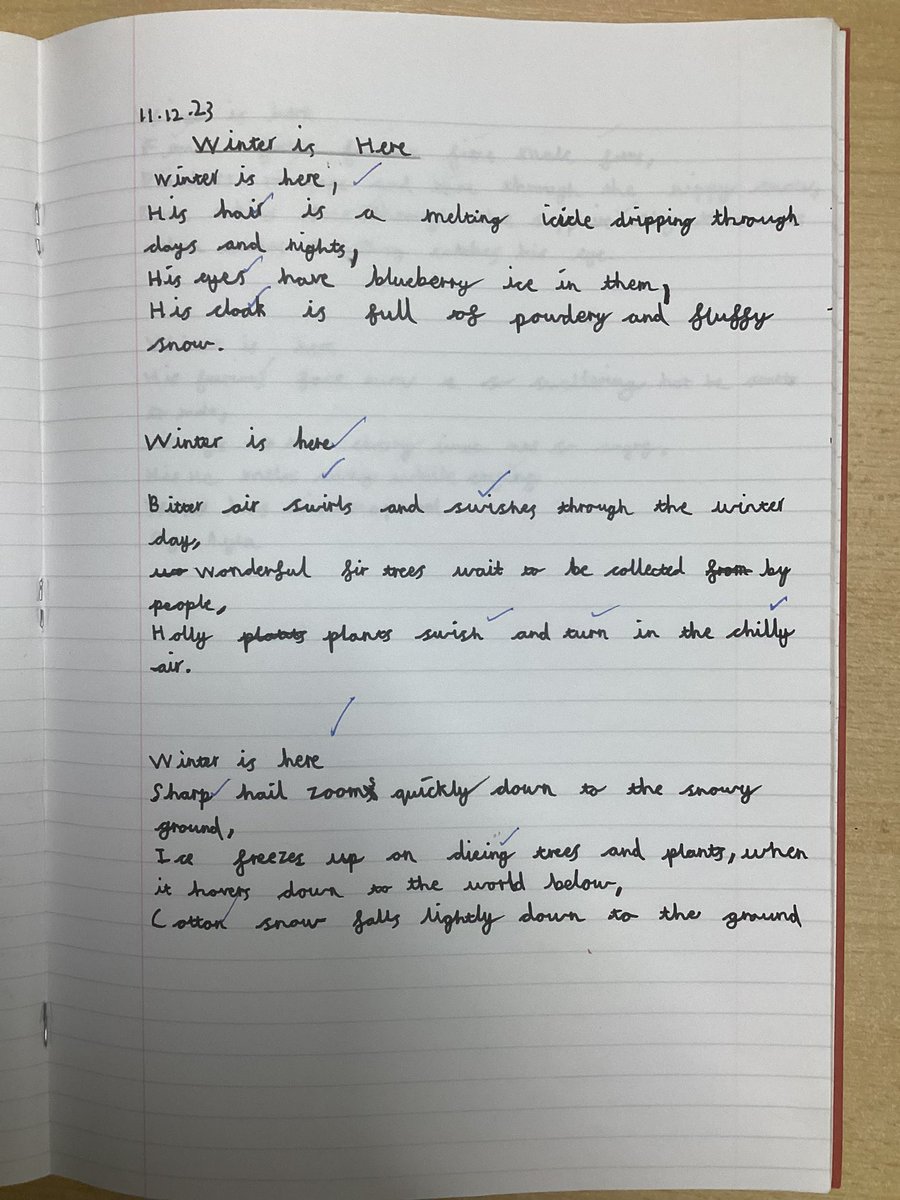 11.12.23
Winter is Here
Winter is here,
His hair is a melting icicle dripping through
days and nights,
His eyes have blueberry ice in them,
His cloak is full of powdery and fluffy
snow.
Winter is here
Bitter air swirls and swishes through the winter
day,
wo Wonderful fir trees wait to be collected from by
people,
Holly plants plants swish and turn in the chilly
air.
Winter is here
Sharp hail zooms quickly down to the snowy
ground,
Ice freezes up on dieing trees and plants, when
it hovers down to the world below,
Cotton snow falls lightly down to the ground